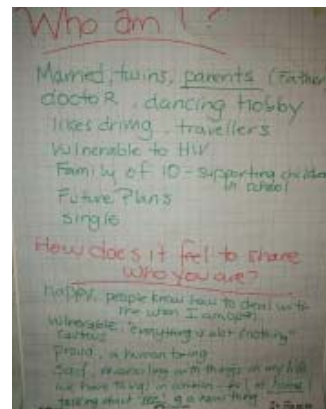 Who am I?
Married, twins, parents (Father
doctoR, dancing Hobby
likes driving, travellers
Vulnerable to HIV
Family of 10 - supporting children
in school
Future Plans
single
How does it feel to share
who you are?
happy, people know how to deal with
me when I am
Vulnerable,
Cautious
Proud, a human being
with things in my life
we have things in common
talking about